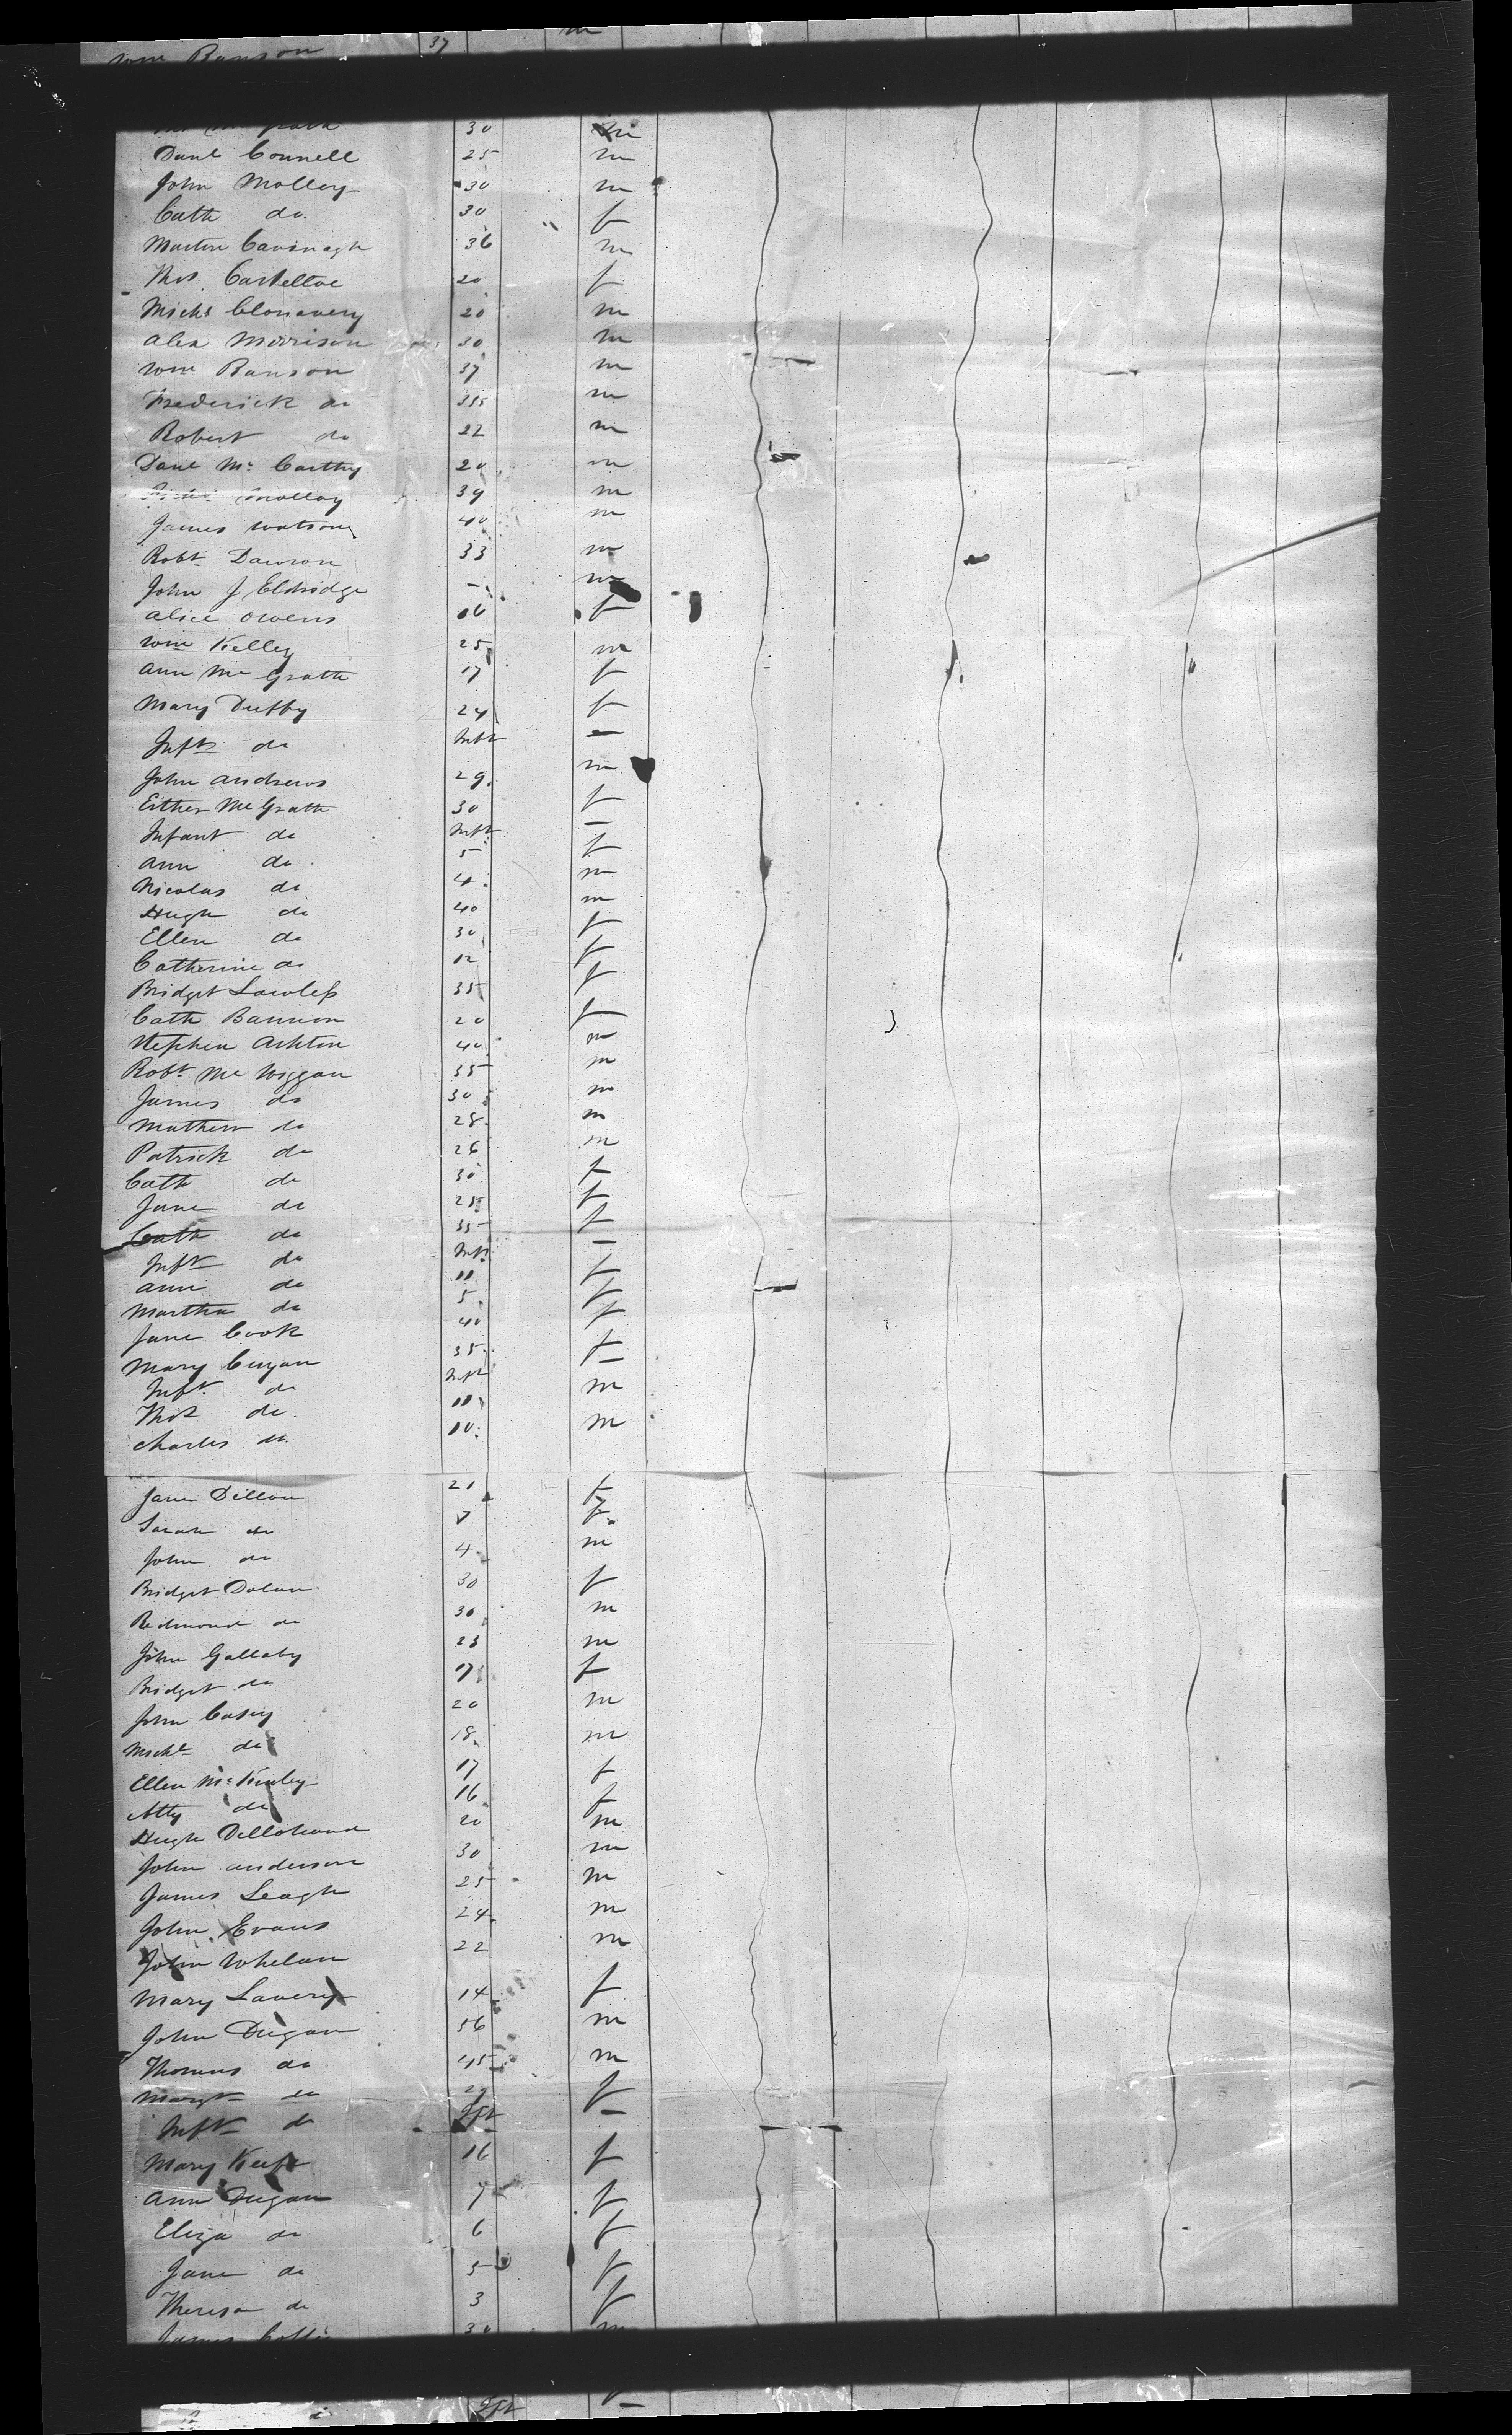 Wm Banson 37 m
30 m
Danl Connell 25 m
John Molloy 30 m
Cath do. 30 f
Martin Cavinagh 36 m
Thos. 20 f
Michl Clonavery 20 m
Alex Morrison 30 m
Wm Banson 37 m
Frederick do 35 m
Robert do 22 m
Danl Mc Carthy 20 m
Molloy 39 m
James Watson 40 m
Robt. Dawson 33 m
John J Eldridge - m
Alice Owens 16 f
Wm Kelley 25 m
Ann Mc Grath 17 f
Mary Duffy 24 f
Inft do Inft -
John Andrews 29 m
Esther Mc Grath 30 f
Infant do Inft -
Ann do. 5 f
Nicolas do 4 m
Hugh do 40 m
Ellen do 30 f
Catherine do 12 f
Bridget Lawless 35 f
Cath Bannon 20 f
Stephen Ashton 40 m
Robt. Mc Wiggan 35 m
James do 30 m
Mathew do 28 m
Patrick do 26 m
Cath do 30 f
Jane do 25 f
Cath do 35 f
Inft do Inft -
Ann do 11 f
Martha do 5 f
Jane Cook 40 f
Mary Curgan 35 f
Inft. do Inft -
Thos do. 11 m
Charles do. 10 m
Jane Dillon 21 f
Sarah do f
John do 4 m
Bridget Dolan 30 f
Redmond do 30 m
John Gallaby 23 m
Bridget do 17 f
John Casey 20 m
Michl do 18 m
Ellen Mc Kinley 17 f
Atty do 16 f
Hugh 20 m
John Anderson 30 m
James Leagh 25 m
John Evans 24 m
John Whelan 22 m
Mary Lavery 14 f
John Dugan 56 m
Thomas do 45 m
Margt do f
Inft do Inft -
Mary Keefe 16 f
Ann Dugan 7 f
Eliza do 6 f
Jane do 5 f
Theresa do 3 f
James 30 m
Inft -